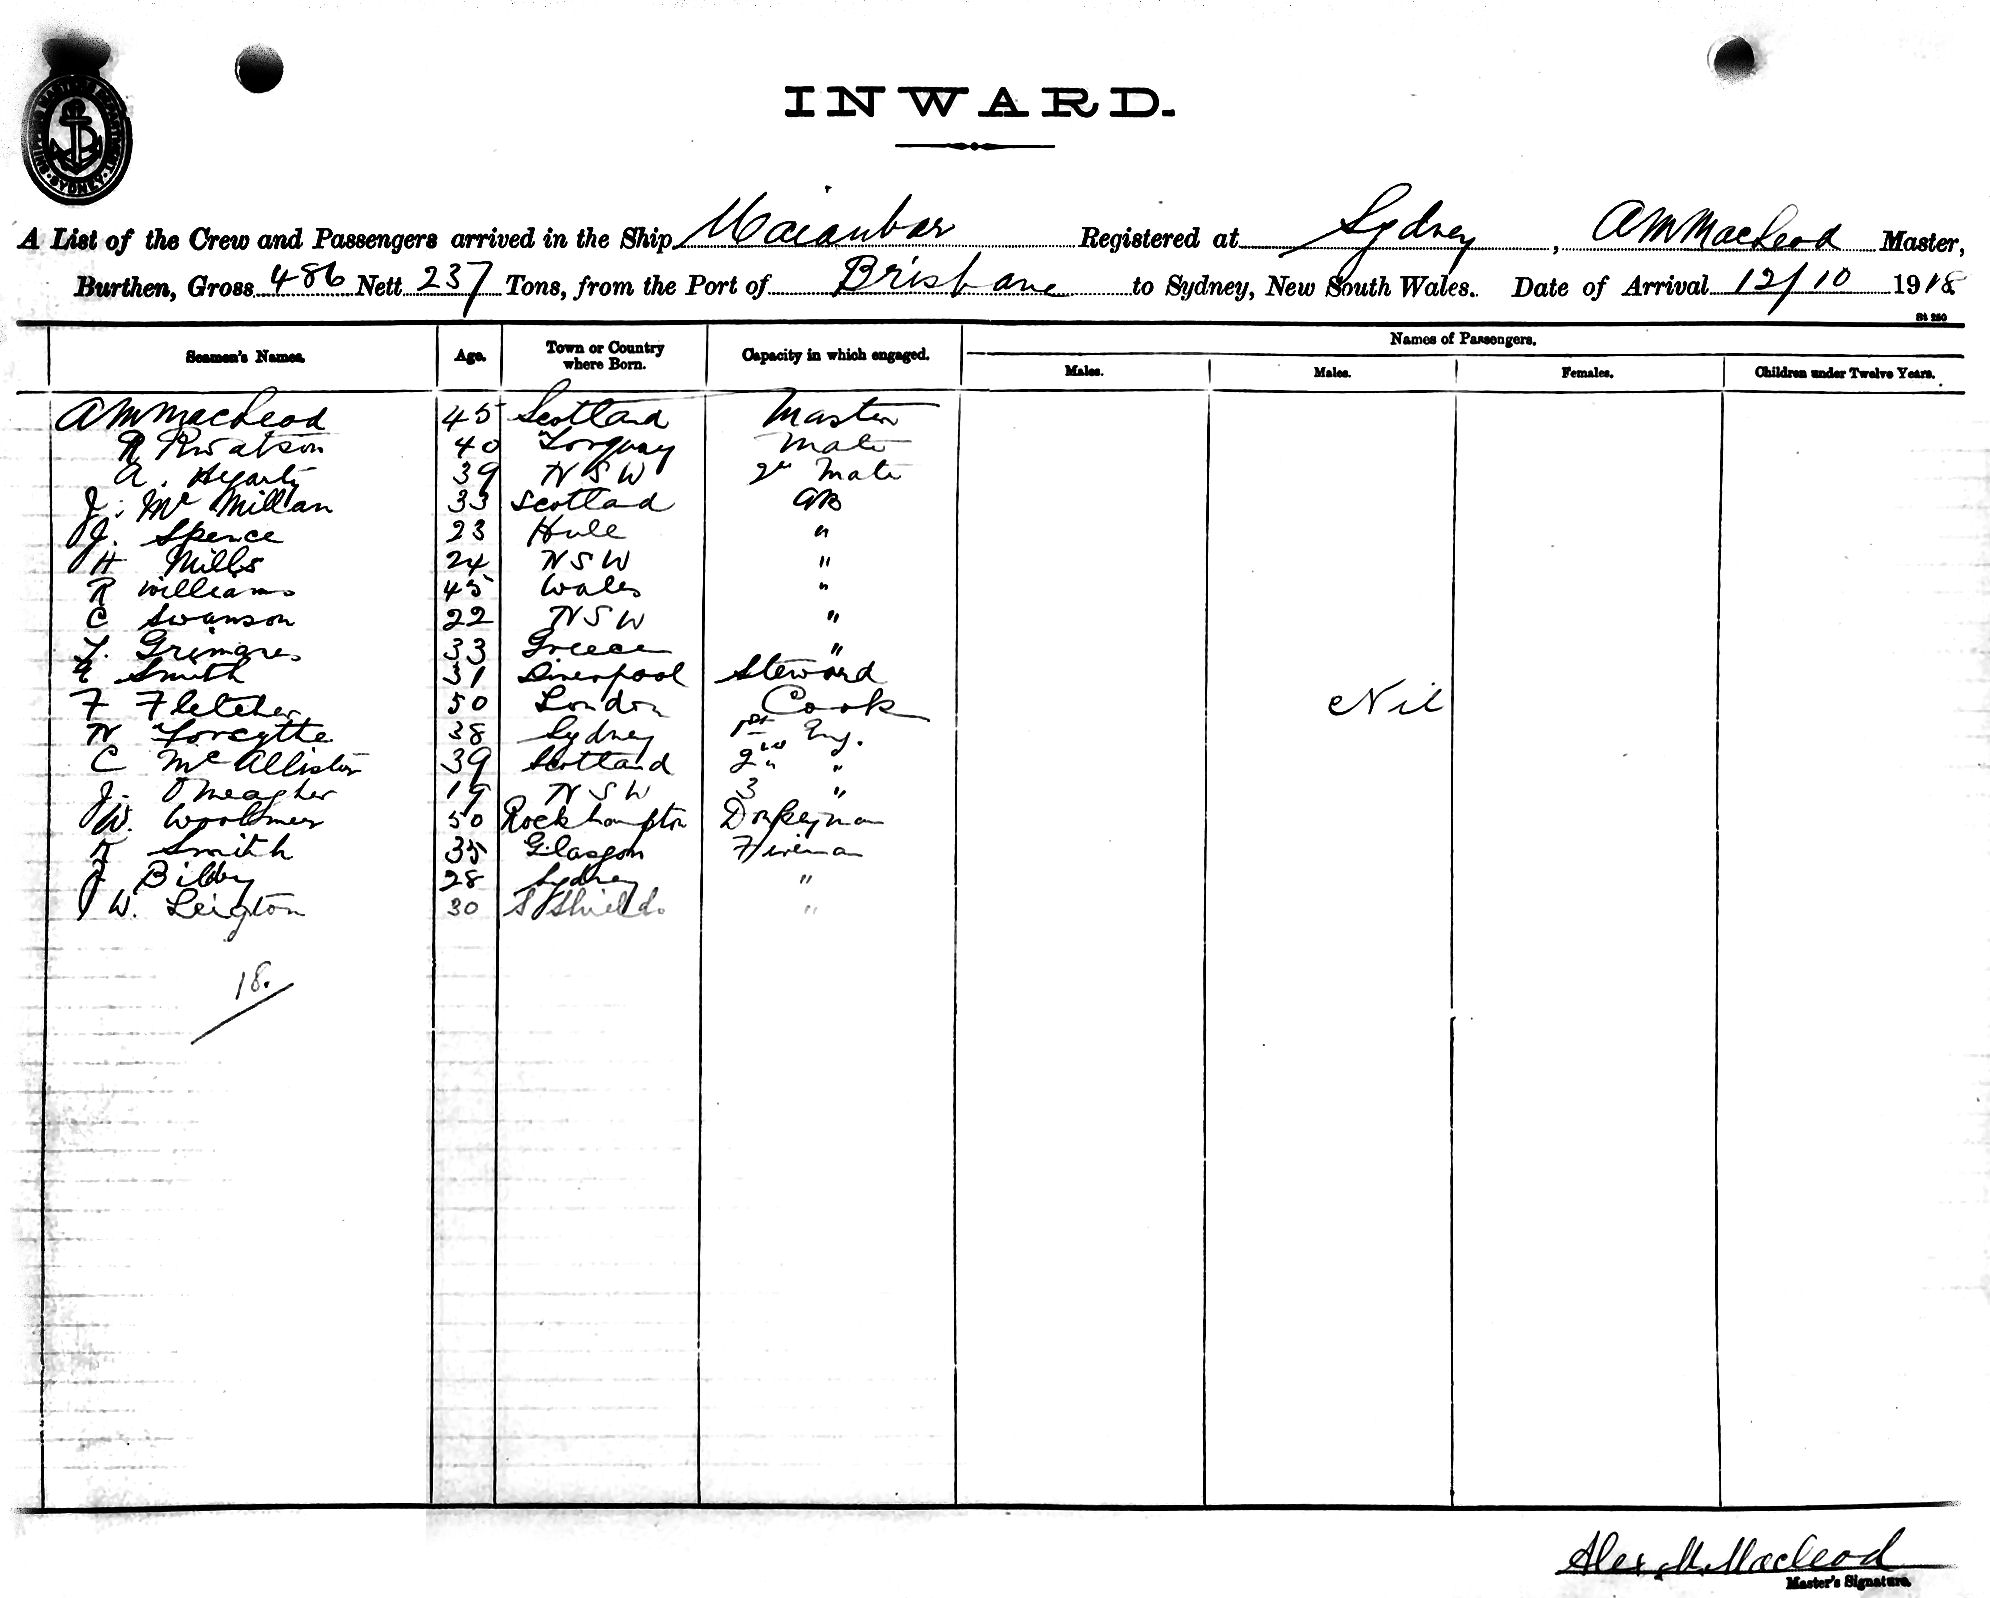 SHIPPING MASTERS DEPARTMENT · SYDNEY ·
INWARD.
A List of the Crew and Passengers arrived in the Ship Maianbar Registered at Sydney, A M MacLeod Master,
Burthen, Gross 486 Nett 237 Tons, from the Port of Brisbane to Sydney, New South Wales. Date of Arrival 12/10 1918
St 280
Seamen's Names. Age. Town or Country where Born. Capacity in which engaged. Names of Passengers.
Males. Males. Females. Children under Twelve Years.
A M MacLeod 45 Scotland Master
R Rwatson 40 Torquay Mate
A. Hegarty 39 N S W 2nd Mate
J. Mc Millan 33 Scotland AB
J. Spence 23 Hull "
H Mills 24 N S W "
R Williams 45 Wales "
C Swanson 22 N S W "
T. Grimanes 33 Greece "
E Smith 31 Liverpool Steward
F Fletcher 50 London Cook Nil
N Forsythe 38 Sydney 1st Eng.
C McAllister 39 Scotland 2nd " "
J. O'Meagher 19 N S W 3 "
W. Woolmer 50 Rockhampton Donkeyman
Smith 35 Glasgow Fireman
J Bilby 28 Sydney "
W. Leigton 30 S Shields "
18.
Alex. M. Macleod
Master's Signature.